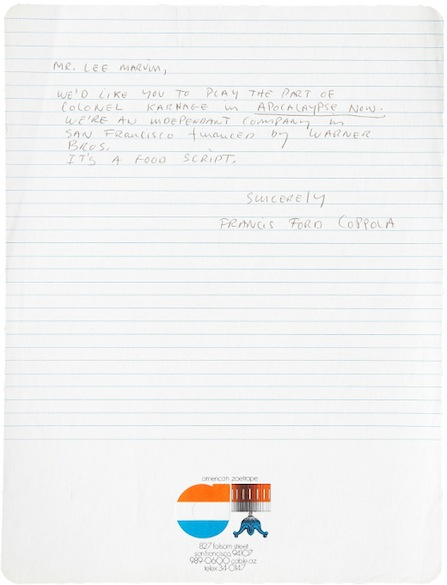 MR. LEE MARVIN,
WE'D LIKE YOU TO PLAY THE PART OF
COLONEL KARNAGE IN APOCALYPSE NOW.
WE'RE AN INDEPENDANT COMPANY IN
SAN FRANCISCO FINANCED by WARNER
BROS.
IT'S A GOOD SCRIPT.
SINCERELY
FRANCIS FORD COPPOLA
american zoetrope
827 folsom street
san francisco 94107
989-0600 cable: az
telex 34-0147